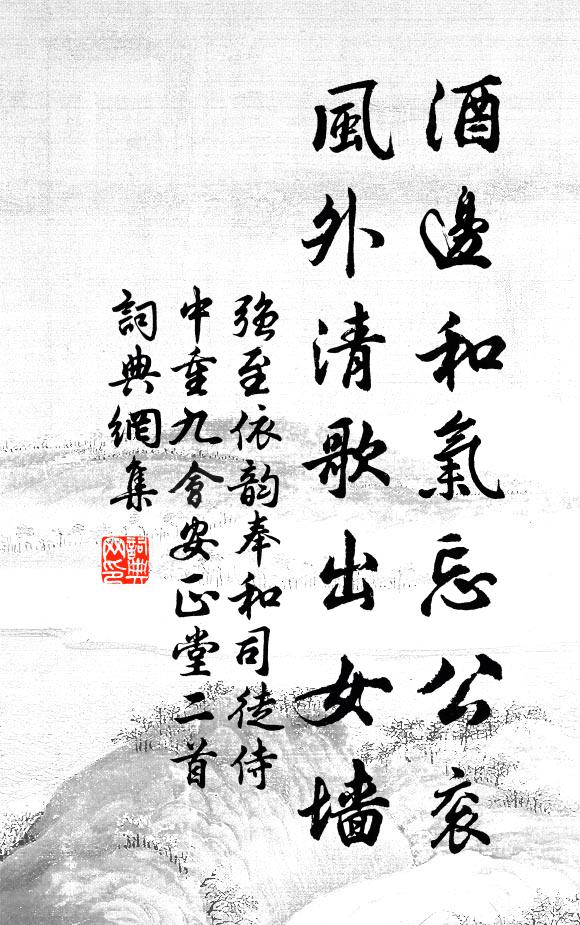 酒邊和氣忘公袞
風外清歌出女墻
強至依韵奉和司徒侍
中重九會安正堂二首
詞典網集
詞典
网印